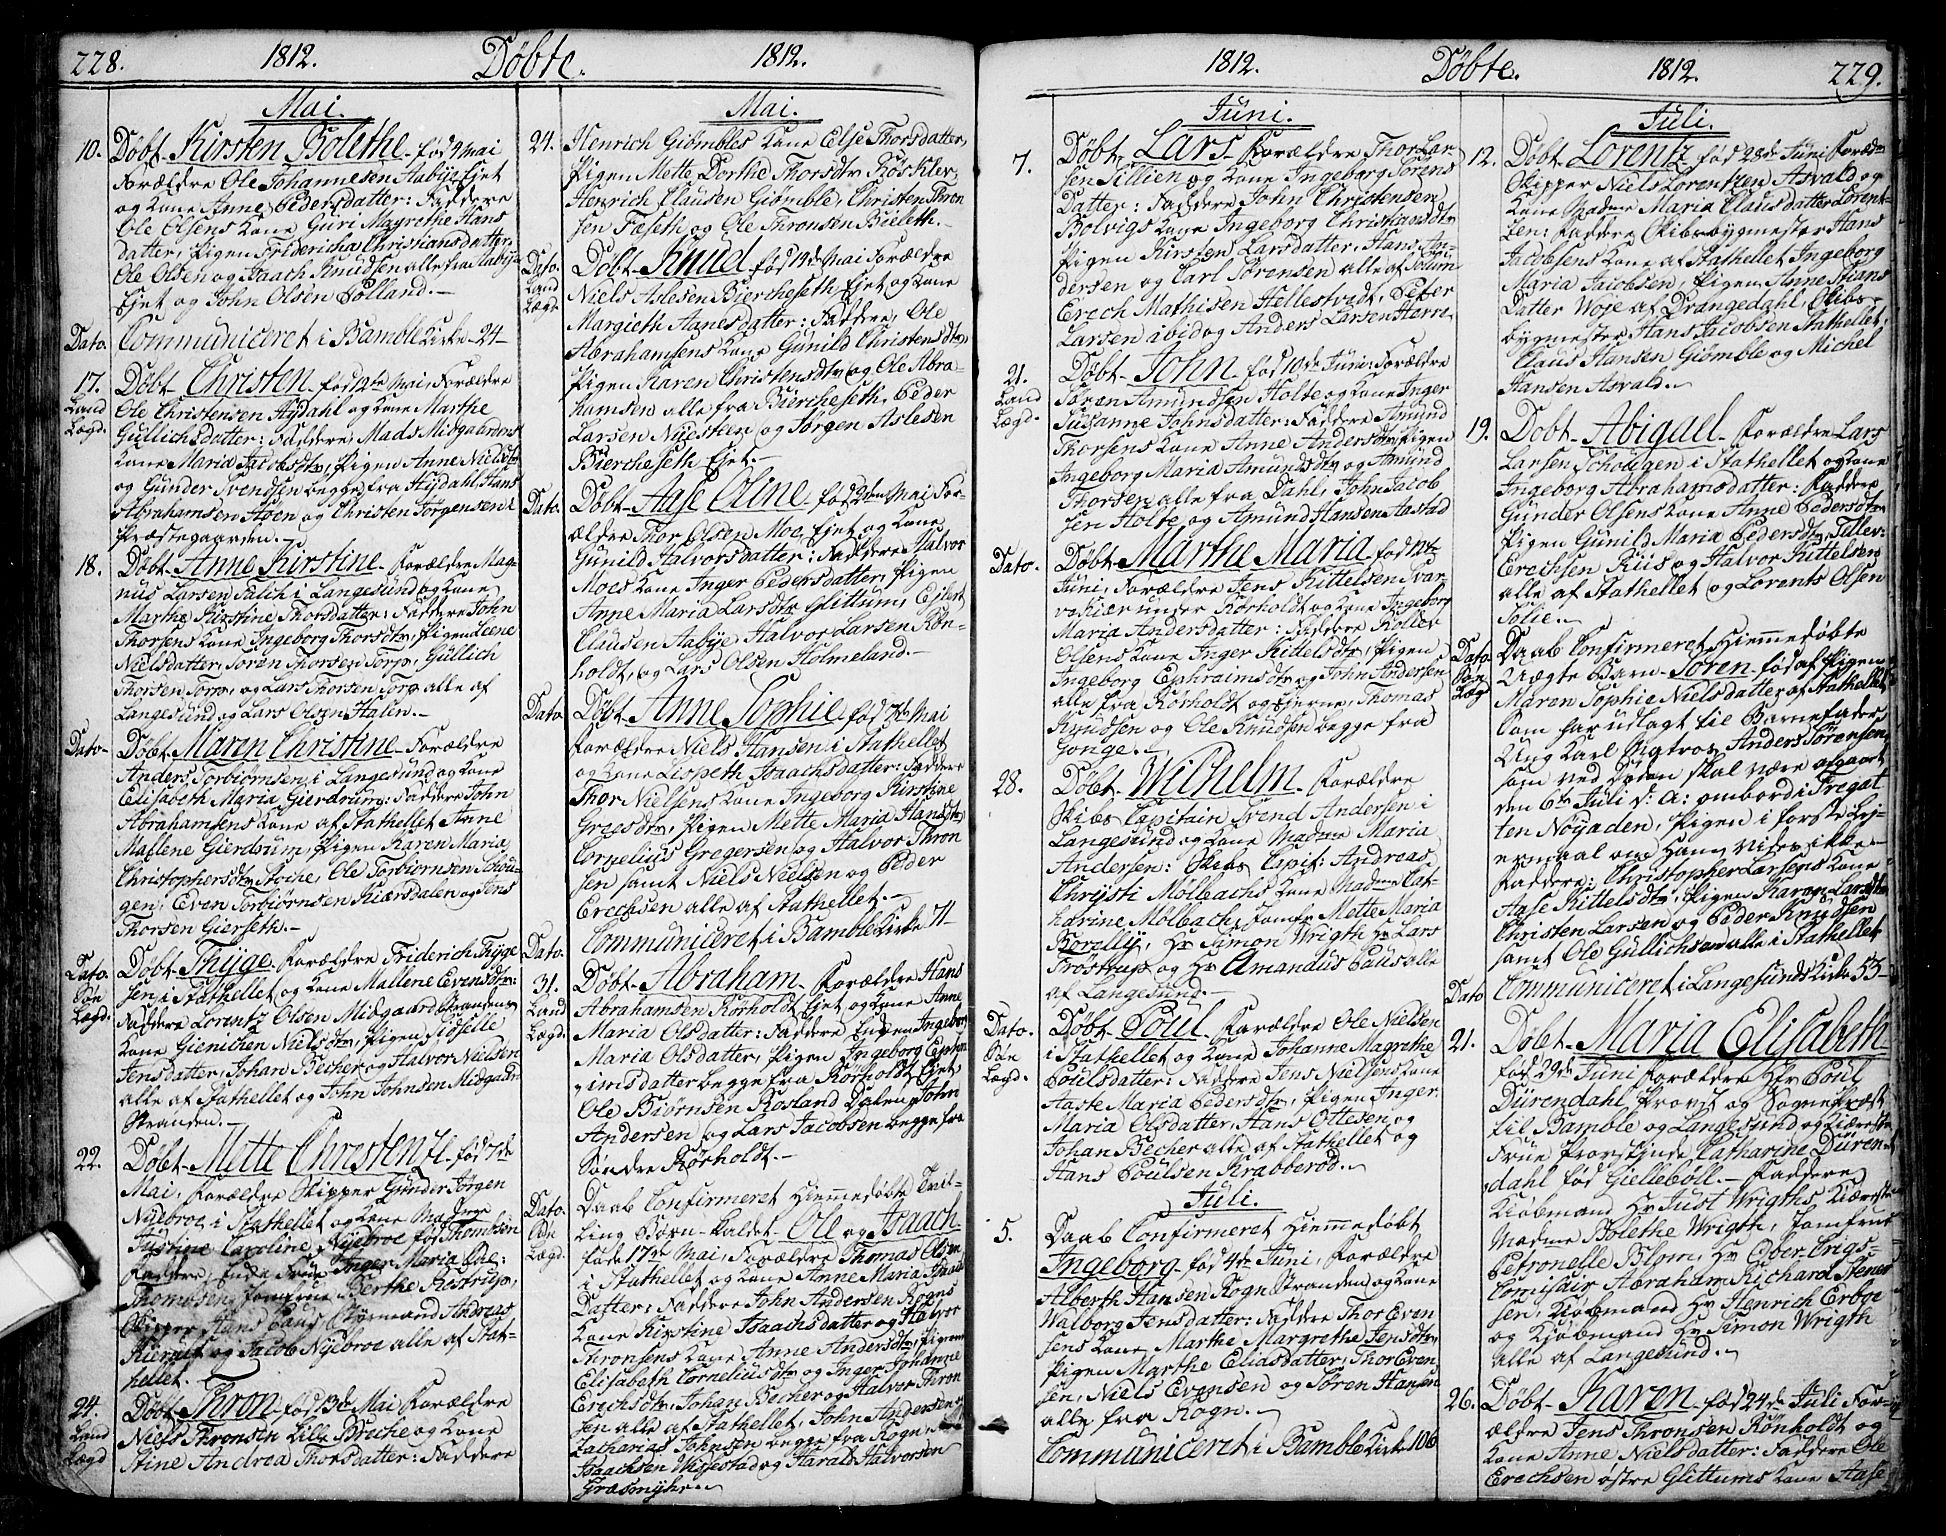 228. 1812. Døbte. 1812.
Mai.
10. Døbt Kirsten Bolethe fød 9 Mai
Forældre Ole Johannesen Aabye Ejet
og Kone Anne Pedersdatter: Faddere
Ole Olsens Kone Guri Magrethe Hans
datter, Pigen Fridericha Christiansdatter,
Ole Olsen og Isaach Knudsen alle fra Aabye
Ejet og John Olsen Polland.
Dato. Communiceret i Bamble Kirke 24
17. Døbt Christen fød 12te Mai, Forældre
Land Ole Christensen Hydahl og Kone Marthe
Lægd. Gullichsdatter: Faddere Mads Midgaardens
Kone Maria Jacobsdtr, Pigen Anne Nielsdtr
og Gunder Svendsen begge fra Hydahl, Hans
Abrahamsen Aaen og Christen Jørgensen i
Præstegaarden.
18. Døbt Anne Kirstine Forældre Mag-
nus Larsen Falch i Langesund og Kone
Marthe Kirstine Thorsdatter: Faddere John
Thorsens Kone Ingeborg Thorsdtr, Pigen Leene
Nielsdatter, Søren Thorsen Torp, Gullich
Thorsen Torp, og Lars Thorsen Torp alle af
Langesund og Lars Olsen Stalen.
Dato Døbt Maren Christine Forældre
Anders Torbiørnsen i Langesund og Kone
Elisabeth Maria Gierdrum: Faddere John
Abrahamsens Kone af Stathellet Anne
Mallene Gierdrum, Pigen Karen Maria
Christophersdtr Stoihe, Ole Torbiørnsen Schou-
gen, Even Torbiørnsen Kiærsdalen og Jens
Thorsen Gierseth.
Dato Døbt Thyge Forældre Friderich Thyge
Søe sen i Stathellet og Kone Mallene Evensdtr:
Lægd. Faddere Lorentz Olsen Midgaardstrandens
Kone Gienichen Nielsdtr, Pigen Sidselle
Jensdatter, Johan Becher og Halvor Nielsen
alle af Stathellet og John Johnsen Midgaard
Stranden.
22. Døbt Mette Christenze fød 7de
Mai, Forældre Skipper Gunder Jørgen
Nyebroe i Stathellet og Kone Madme
Justine Caroline Nyebroe fød Thomsen
Faddere, Enke Frue Inger Maria
Thomesen, Jomfrue Berthe Kistrup,
Skipper Hans Paus Styrmand Andreas
og Jacob Nyebroe alle af Stat-
hellet.
24. Døbt Thron fød 13de Mai Forældre
Land Niels Thronsen Lille Breche og Kone
Lægd Stine Andrea Thorsdatter: Faddere
Mai.
24. Henrich Giømbles Kone Else Thorsdatter,
Pigen Mette Dorthe Thorsdtr Røskler,
Henrich Clausen Giømble, Christen Thron
sen Foseth og Ole Thronsen Bieleth.
Dato. Døbt Knud fød 14de Mai Forældre
Land Niels Aslesen Biercheseth Ejet og Kone
Lægd. Margieth Aanesdatter: Faddere, Ole
Abrahamsens Kone Gunild Christensdtr,
Pigen Karen Christensdtr og Ole Abra-
hamsen alle fra Biercheseth, Peder
Larsen Nyesteen og Jørgen Aslesen
Biercheseth Ejet.
Dato. Døbt Aase Oline fød 2den Mai For-
ældre Thor Olsen Moe Ejet og Kone
Gunild Halvorsdatter: Faddere Halvor
Moes Kone Inger Pedersdatter, Pigen
Anne Maria Larsdtr Glittum, Ejlert
Clausen Aabye Halvor Larsen Røn-
holdt, og Lars Olsen Holmeland.
Dato. Døbt Anne Sophie fød 3die Mai
Forældre Niels Hansen i Stathellet
og Kone Lisbeth Isaachsdatter: Faddere
Thor Nielsens Kone Ingeborg Kirstine
Greesdtr, Pigen Mette Maria Hansdtr,
Cornelius Gregersen og Halvor Thron
sen samt Niels Nielsen og Peder
Erechsen alle af Stathellet.
Dato. Communiceret i Bamble Kirke 71
31. Døbt Abraham Forældre Hans
Land Abrahamsen Rørholdt Ejet og Kone Anne
Lægd. Maria Olsdatter: Faddere Enken Ingeborg
Maria Olsdatter, Pigen Ingeborg Ephra-
imsdatter begge fra Rørholdt Ejet,
Ole Biørnsen Rosland Dalen, John
Andersen og Lars Jacobsen begge fra
Søndre Rørholdt.
Dato. Daab Confirmeret Hiemmedøbte Tvil-
Søe ling Børn kaldet Ole og Isaach
Lægd. føde 17de Mai, Forældre Thomas Olsen
i Stathellet og Kone Anne Maria Isaachs
Datter: Faddere John Andersen Rogns
Kone Kirstine Isaachsdatter og Halvor
Thronsens Kone Anne Andersdtr, Pigerne
Elisabeth Corneliusdtr og Inger Johanne
Erechsdtr, Johan Becher og Halvor Thron
sen alle af Stathellet, John Andersen og
Zacharias Johnsen begge fra Rogn,
Isaachsen Vissestad og Harald Halvorsen
Grasmyhr.
1812. Døbte. 1812. 229.
Juni.
7. Døbt Lars Forældre Thor Lar-
sen Tillien og Kone Ingeborg Sørens
Datter: Faddere John Christensen
Bolvigs Kone Ingeborg Christiansdtr
Pigen Kirsten Larsdatter, Hans An-
dersen og Carl Sørensen alle af
Erech Mathisen Hellestvedt, Peter
Larsen ibid og Anders Larsen Herre
21. Døbt John fød 10de Juni: Forældre
Land Søren Amundsen Holte og Kone Inger
Lægd. Susanne Johnsdatter: Faddere Amund
Thorsens Kone Anne Andersdtr, Pigen
Ingeborg Maria Amundsdtr og Amund
Thorsen alle fra Dahl, John Jacob
sen Holte og Amund Hansen Aastad
Dato. Døbt Marthe Maria fød 10de
Juni, Forældre Jens Kittelsen Svar-
vekiær under Rørholdt og Kone Ingeborg
Maria Andersdatter: Faddere Rollev
Olsens Kone Inger Kittelsdtr, Pigen
Ingeborg Ephraimsdtr og John Andersen
alle fra Rørholdt og Ejerne, Thomas
Knudsen og Ole Knudsen begge fra
Gonge.
28. Døbt Wilhelm Forældre
Skibs Capitain Svend Andersen i
Langesund og Kone Madme Maria
Andersen: Skibs Capit: Andreas
Christi Mølbachs Kone Madme Cat-
harine Mølbach, Jomfr Mette Maria
Borelly, Hr Simon Wrigth Hr Lars
Trøstrup og Hr Amandus Paus alle
af Langesund.
Dato. Døbt Poul Forældre Ole Nielsen
Søe i Stathellet og Kone Johanne Magrethe
Lægd. Poulsdatter: Faddere Jens Nielsens Kone
Aaste Maria Pedersdtr, Pigen Inger
Maria Olsdatter, Hans Ottesen og
Johan Becher alle af Stathellet og
Hans Poulsen Krabberød.
Juli.
5. Daab Confirmeret Hiemmedøbt
Ingeborg fød 4de Juni, Forældre
Alberth Hansen Rogn Stranden og Kone
Walborg Jensdatter: Faddere Thor Even
sens Kone Marthe Margrethe Jensdtr,
Pigen Marthe Eliasdatter, Thor Even
sen, Niels Evensen og Søren Hansen
alle fra Rogn.
Communiceret i Bamble Kirke 106
Juli.
12. Døbt Lorentz fød 28de Juni Foræld
Skipper Niels Lorentzen Asvald og
Kone Madme Maria Clausdatter Lorent-
zen: Faddere Skibsbygmester Hans
Jacobsens Kone af Stathellet Ingeborg
Maria Jacobsen, Pigen Anne Stians
Datter Woje af Drangedahl, Skibs-
bygmester Hans Jacobsen Stathellet,
Claus Hansen Giømble og Michel
Hansen Asvald.
19. Døbt Abigael Forældre Lars
Larsen Schougen i Stathellet og Kone
Ingeborg Abrahamsdatter: Faddere
Gunder Olsens Kone Anne Pedersdtr
Pigen Gunild Maria Pedersdtr, Tellev
Erechsen Riis og Halvor Kittelsen
alle af Stathellet og Lorents Olsen
Solie.
Dato Daab Confirmeret Hiemmedøbte
Søe Uægte Barn Søren fød af Pigen
Lægd Maren Sophie Nielsdatter af Stathellet,
Som har udlagt til Barnefader
Ung Karl Matros Anders Sørensen,
som ved Søen skal være afgaaet
den 6te Juli d: A: ombord i Fregat
ten Nøyaden, Pigen i første Lej-
ermaal om Ham vides ikke
Faddere: Christopher Larsens Kone
Aase Kittelsdtr, Pigen Karen Larsdtr
Christen Larsen og Peder Knudsen
samt Ole Gullichsen alle i Stathellet
Dato Communiceret i Langesunds Kirke 53
21. Døbt Maria Elisabeth
fød 29de Juni Forældre Hr Poul
Dürendahl Provst og Sognepræst
til Bamble og Langesund og Kiæreste
Frue Provstinde Catharine Düren-
dahl fød Giellebøll. Faddere
Kiøbmand Hr Just Wrigths Kiæreste
Madme Bolethe Wrigth, Jomfrue
Petronelle Blom, Hr Over Krigs-
Comissair Abraham Richard Stener
sen, Kiøbmand Hr Henrich Erboe
og Kjøbmand Hr Simon Wrigth
alle af Langesund.
26. Døbt Karen fød 24de Juli For-
ældre Jens Thronsen Rønholdt og
Kone Anne Nielsdatter: Faddere Ole
Erechsen østre Glittums Kone Aase